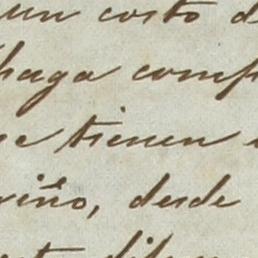 un costo d
haga comp
se tienen
riño, desde